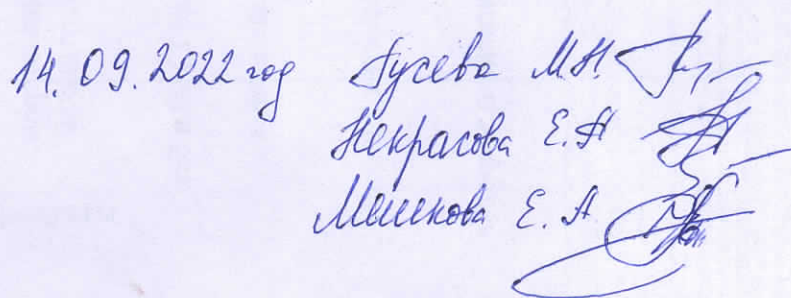 14.09.2022 год Гусева М.Н.
Некрасова Е.А
Мешкова Е.А